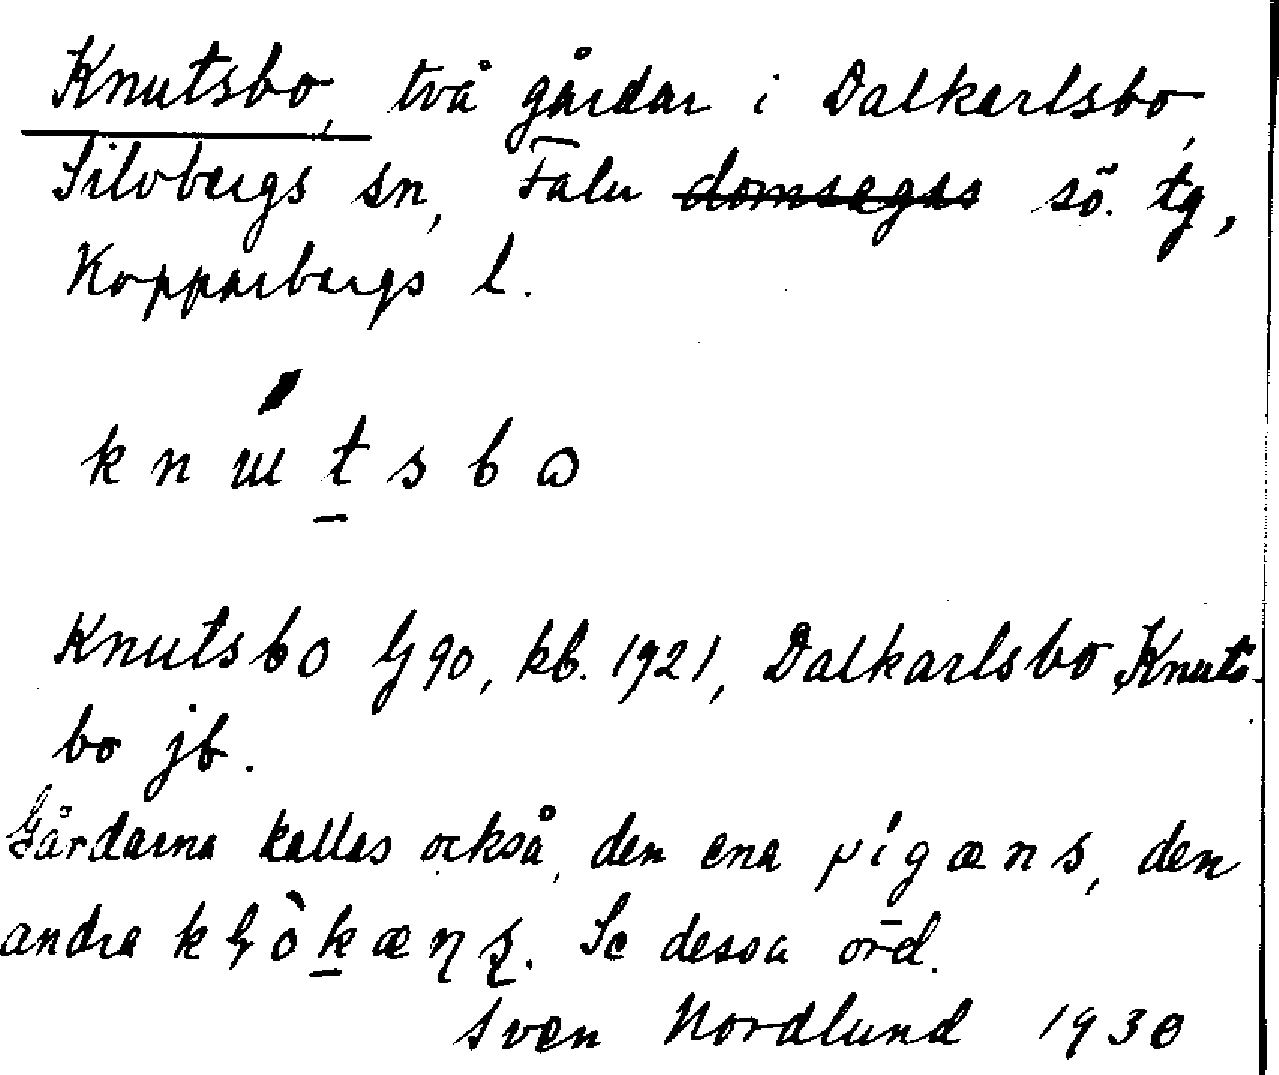 Knutsbo, två gårdar i Dalkarlsbo,
Silvbergs sn, Falu domsagas sö. tg,
Kopparbergs l.
k n ɯ́ t s b ω
Knutsbo G 90, kb. 1921, Dalkarlsbo, Knuts-
bo jb.
Gårdarna kallas också, den ena p í g æ n s, den
andra k ɭ ò k æ ɳ ʂ. Se dessa ord.
Sven Nordlund 1930